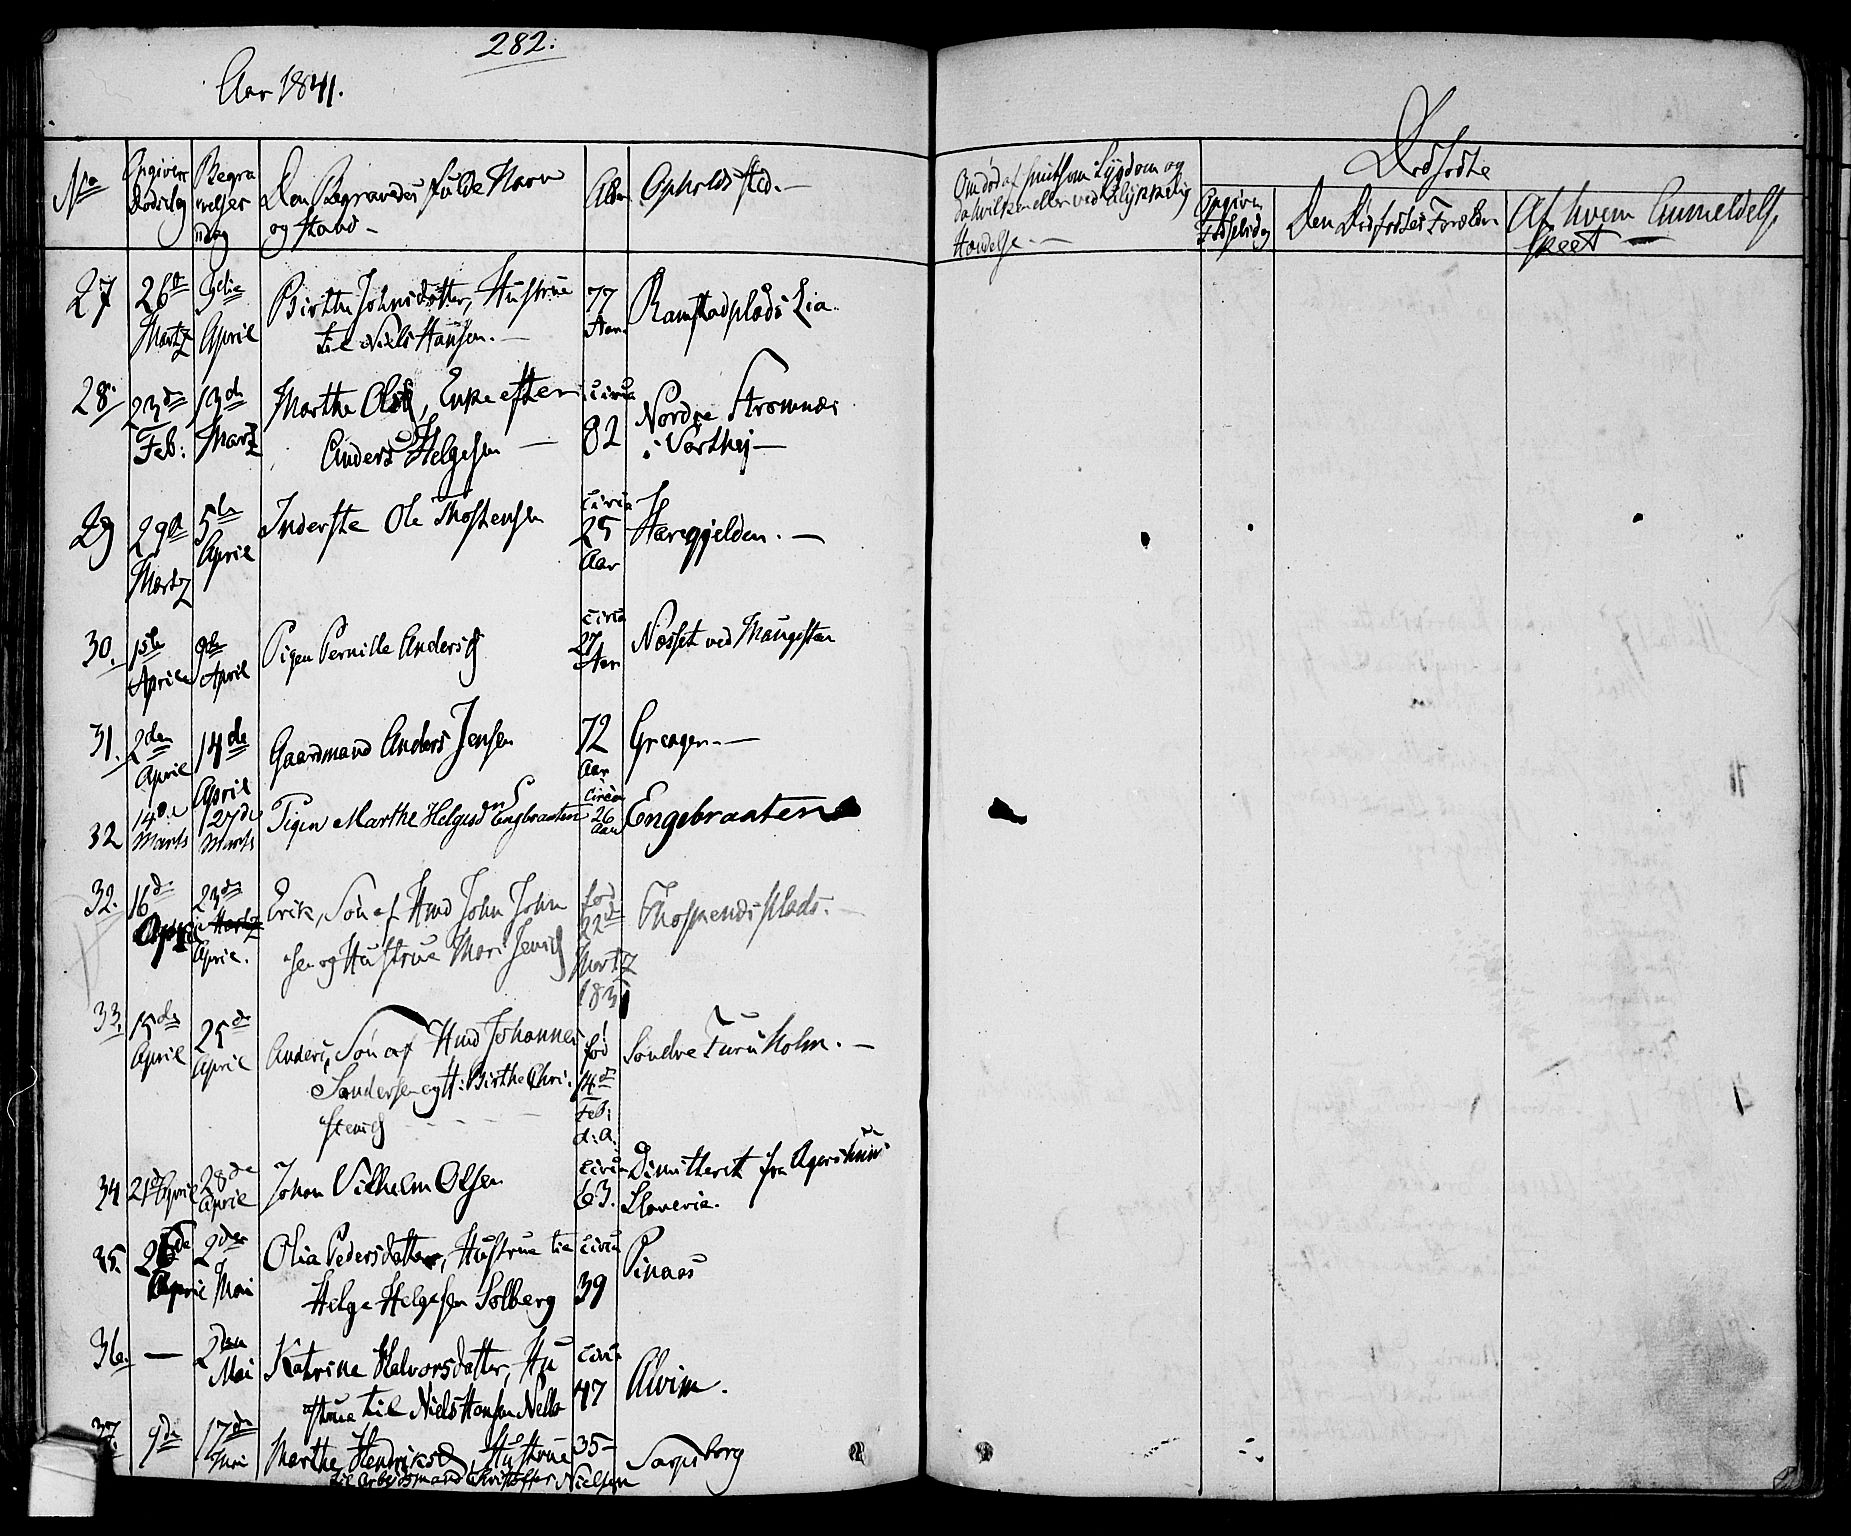 282.
Aar 1841.
No
Opgiven Dødsdag
Begravelsesdag
Den Begravedes fulde Navn og Stand
Alder
Opholdssted.
Om død af smitsom Sygdom og da hvilken eller ved ulykkelig Hændelse.
Dødfødte
Opgiven Fødselsdag
Den Dødfødtes Forældre
Af hvem Anmeldelse skeet
27 26de Martz 3die April Birthe Johnsdatter, Hustrue 77 Aar Ramstadplads Lia.
til Niels Hansen.
28. 23de Feb: 13de Martz Marthe Olsd, Enke efter circa 82 Nordre Strømnæs
Anders Helgesen i Varthej
29 29de Martz 5te April Inderste Ole Thostensen circa 25 Aar Høregjelden.
30. 1ste April 9de April Pigen Pernille Andersd circa 27 Aar Næsset ved Maugesten
31. 2den April 14de April Gaardmand Anders Jensen 72 Aar Greager.
32 14de Marts 27de Marts Pigen Marthe Helgesd Engebraaten circa 26 Aar Engebraaten
32. 16de April 23de April. Erik, Søn af Hmd John John fød 22de Martz 183 Thospendsplads.
sen og Hustrue Mari Jensd
33. 15de April 25de April Anders, Søn af Hmd Johannes fød 14de Feb: d: a. Søndre Furuholm.
Sandersen og H: Birthe Chri-
stensd
34 21de April 28de April Johan Vilhelm Olsen circa 63. Dimitteret fra Agershuus
Slaverie.
35. 26de April 2den Mai Olia Pedersdatter, Hustrue til circa 39 Pinaas
Helge Helgesen Solberg
36. — 2den Mai Katrine Halvorsdatter, Hu circa 47 Alvim.
strue til Niels Hansen
37. 9de 17de Mai Marthe Hendriksd, Hustrue 35 Sarpsborg
til Arbejdsmand Christoffer Nielsen